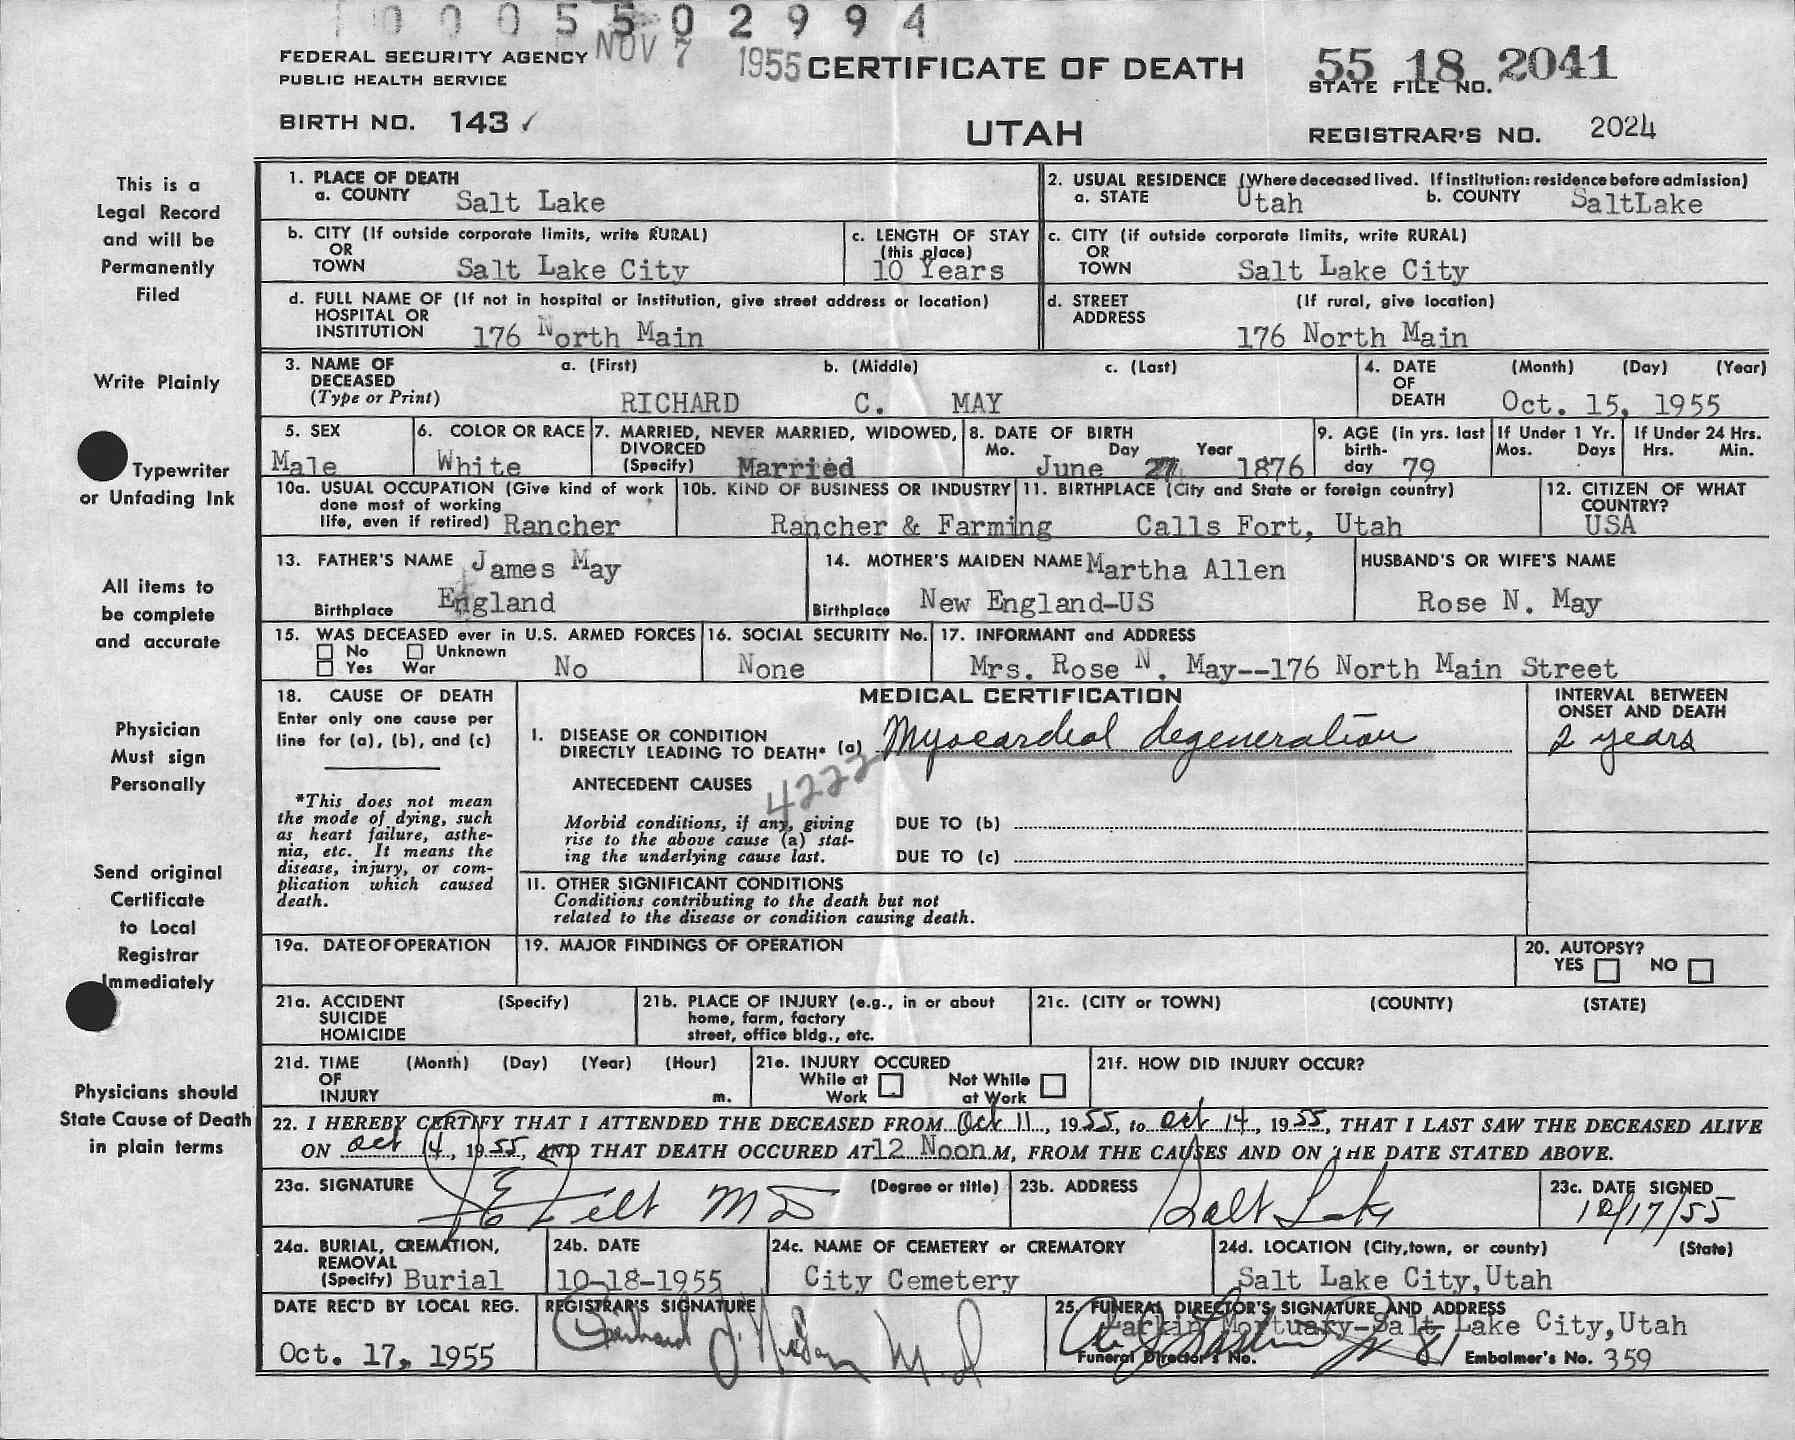 0 0 0 5 5 0 2 9 9 4
FEDERAL SECURITY AGENCY NOV 7 1955 CERTIFICATE OF DEATH 55 18 2041
PUBLIC HEALTH SERVICE STATE FILE NO.
BIRTH NO. 143 ✓ UTAH REGISTRAR'S NO. 2024
This is a
Legal Record
and will be
Permanently
Filed
Write Plainly
Typewriter
or Unfading Ink
All items to
be complete
and accurate
Physician
Must sign
Personally
Send original
Certificate
to Local
Registrar
Immediately
Physicians should
State Cause of Death
in plain terms
1. PLACE OF DEATH
a. COUNTY Salt Lake
2. USUAL RESIDENCE (Where deceased lived. If institution: residence before admission)
a. STATE Utah b. COUNTY SaltLake
b. CITY (If outside corporate limits, write RURAL)
OR
TOWN Salt Lake City
c. LENGTH OF STAY
(this place)
10 Years
c. CITY (if outside corporate limits, write RURAL)
OR
TOWN Salt Lake City
d. FULL NAME OF (If not in hospital or institution, give street address or location)
HOSPITAL OR
INSTITUTION 176 North Main
d. STREET (If rural, give location)
ADDRESS
176 North Main
3. NAME OF a. (First) b. (Middle) c. (Last)
DECEASED
(Type or Print) RICHARD C. MAY
4. DATE (Month) (Day) (Year)
OF
DEATH Oct. 15, 1955
5. SEX
Male
6. COLOR OR RACE
White
7. MARRIED, NEVER MARRIED, WIDOWED,
DIVORCED
(Specify) Married
8. DATE OF BIRTH
Mo. Day Year
June 27 1876
9. AGE (In yrs. last
birth-
day 79
If Under 1 Yr.
Mos. Days
If Under 24 Hrs.
Hrs. Min.
10a. USUAL OCCUPATION (Give kind of work
done most of working
life, even if retired) Rancher
10b. KIND OF BUSINESS OR INDUSTRY
Rancher & Farming
11. BIRTHPLACE (City and State or foreign country)
Calls Fort, Utah
12. CITIZEN OF WHAT
COUNTRY?
USA
13. FATHER'S NAME James May
Birthplace England
14. MOTHER'S MAIDEN NAME Martha Allen
Birthplace New England-US
HUSBAND'S OR WIFE'S NAME
Rose N. May
15. WAS DECEASED ever in U.S. ARMED FORCES
No Unknown
Yes War No
16. SOCIAL SECURITY No.
None
17. INFORMANT and ADDRESS
Mrs. Rose N. May--176 North Main Street
18. CAUSE OF DEATH
Enter only one cause per
line for (a), (b), and (c)
*This does not mean
the mode of dying, such
as heart failure, asthe-
nia, etc. It means the
disease, injury, or com-
plication which caused
death.
MEDICAL CERTIFICATION
I. DISEASE OR CONDITION
DIRECTLY LEADING TO DEATH* (a) Myocardial degeneration
ANTECEDENT CAUSES 4222
Morbid conditions, if any, giving
rise to the above cause (a) stat-
ing the underlying cause last.
DUE TO (b)
DUE TO (c)
II. OTHER SIGNIFICANT CONDITIONS
Conditions contributing to the death but not
related to the disease or condition causing death.
INTERVAL BETWEEN
ONSET AND DEATH
2 years
19a. DATE OF OPERATION
19. MAJOR FINDINGS OF OPERATION
20. AUTOPSY?
YES NO
21a. ACCIDENT (Specify)
SUICIDE
HOMICIDE
21b. PLACE OF INJURY (e.g., in or about
home, farm, factory
street, office bldg., etc.
21c. (CITY or TOWN) (COUNTY) (STATE)
21d. TIME (Month) (Day) (Year) (Hour)
OF
INJURY m.
21e. INJURY OCCURED
While at Not While
Work at Work
21f. HOW DID INJURY OCCUR?
22. I HEREBY CERTIFY THAT I ATTENDED THE DECEASED FROM Oct 11, 1955, to Oct 14, 1955, THAT I LAST SAW THE DECEASED ALIVE
ON Oct 14, 1955, AND THAT DEATH OCCURED AT 12 Noon M, FROM THE CAUSES AND ON THE DATE STATED ABOVE.
23a. SIGNATURE (Degree or title)
MD
23b. ADDRESS
Salt Lake
23c. DATE SIGNED
10/17/55
24a. BURIAL, CREMATION,
REMOVAL
(Specify) Burial
24b. DATE
10-18-1955
24c. NAME OF CEMETERY or CREMATORY
City Cemetery
24d. LOCATION (City, town, or county) (State)
Salt Lake City, Utah
DATE REC'D BY LOCAL REG.
Oct. 17, 1955
REGISTRAR'S SIGNATURE
M.D
25. FUNERAL DIRECTOR'S SIGNATURE AND ADDRESS
Larkin Mortuary-Salt Lake City, Utah
Funeral Director's No. 81 Embalmer's No. 359